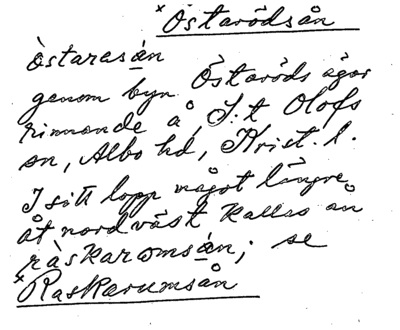 × Östarödsån
òstaresán
genom byn Östaröds ägor
rinnande å, S:t Olofs
sn, Albo hd, Krist. l.
I sitt lopp något längre
åt nordväst kallas ån
ràskaromsán; se
× Raskarumsån